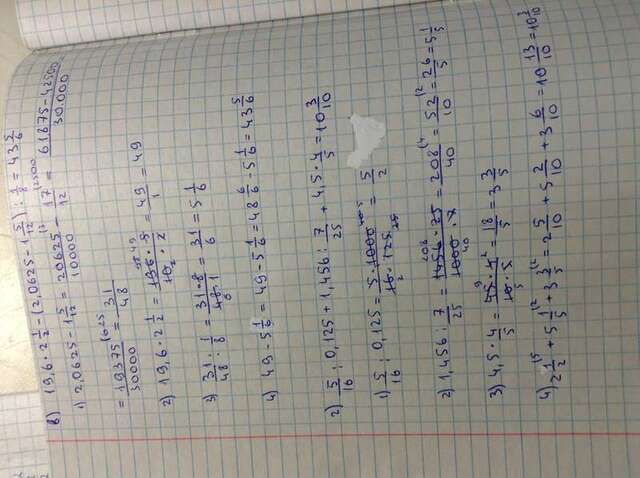 в) 19,6 · 2 1/2 - (2,0625 - 1 5/12) : 1/8 = 43 5/6
1) 2,0625 - 1 5/12 = 20625/10000 - 17/12 = 61875-42500/30.000 =
= 19375/30000 = 31/48
2) 19,6 · 2 1/2 = 196·5/10·2 = 49/1 = 49
3) 31/48 : 1/8 = 31·8/48·1 = 31/6 = 5 1/6
4) 49 - 5 1/6 = 49 - 5 1/6 = 48 6/6 - 5 1/6 = 43 5/6
г) 5/16 : 0,125 + 1,456 : 7/25 + 4,5 · 4/5 = 10 3/10
1) 5/16 : 0,125 = 5·1000/16·125 = 5/2
2) 1,456 : 7/25 = 1456·25/1000·7 = 208/40 = 52/10 = 26/5 = 5 1/5
3) 4,5 · 4/5 = 45·4/10·5 = 18/5 = 3 3/5
4) 2 1/2 + 5 1/5 + 3 3/5 = 2 5/10 + 5 2/10 + 3 6/10 = 10 13/10 = 10 3/10